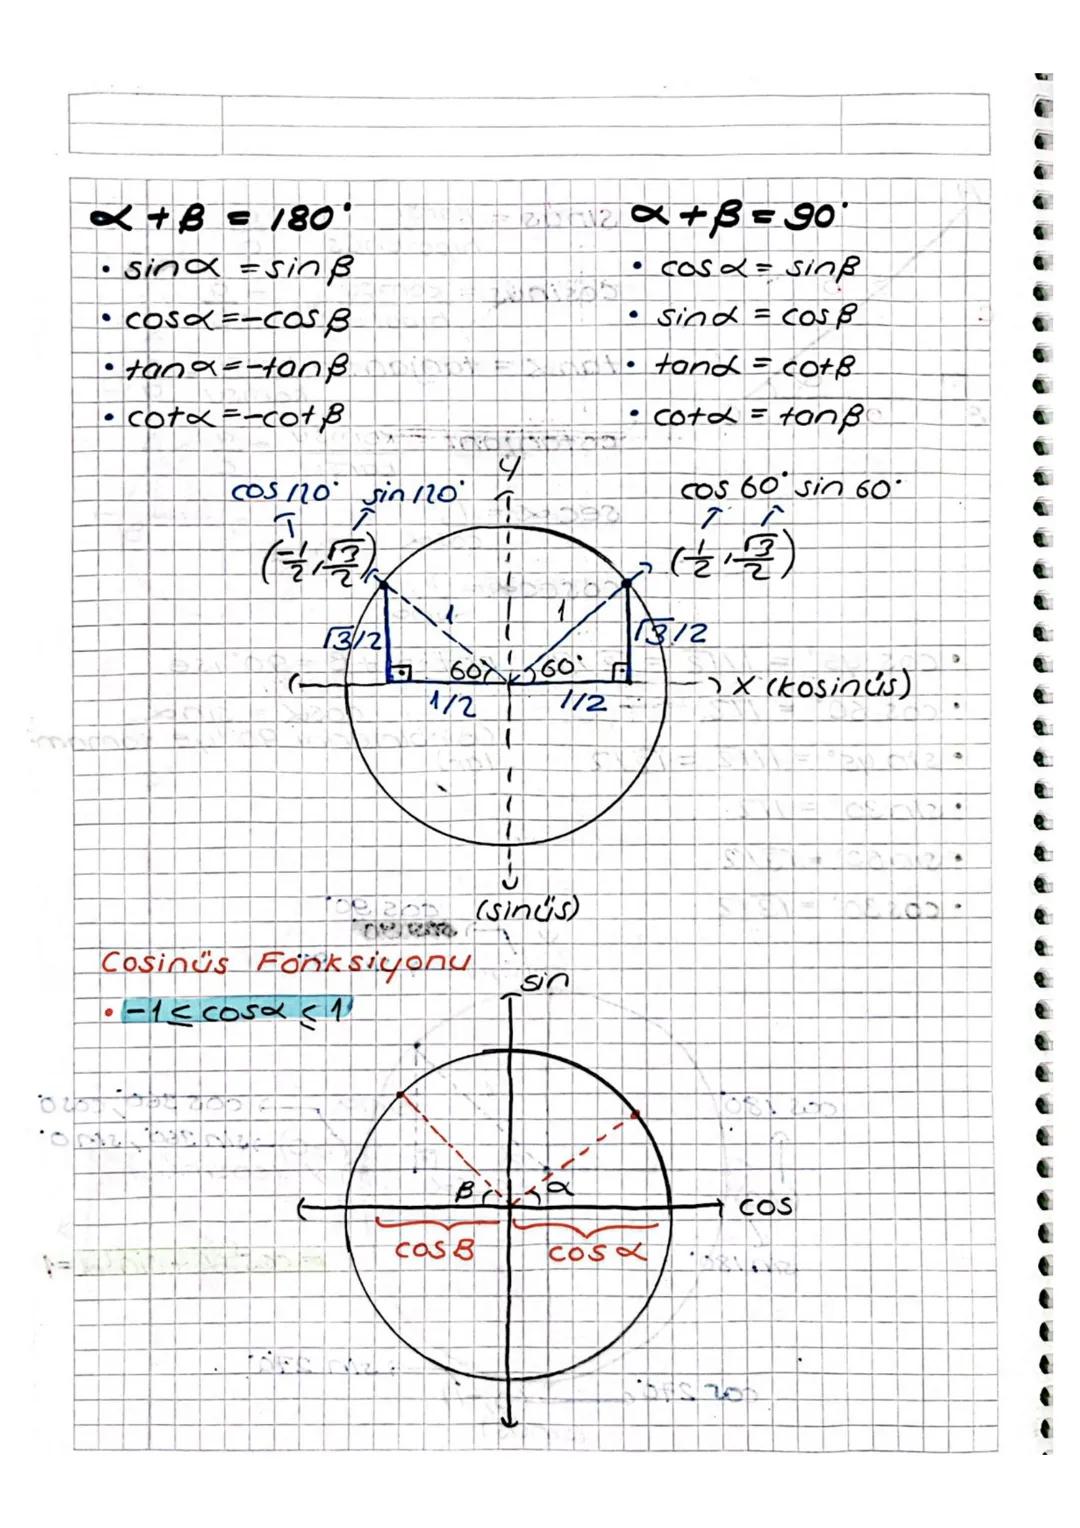 α + β = 180°
• sinα = sinβ
• cosα = -cosβ
• tanα = -tanβ
• cotα = -cotβ
α + β = 90°
• cosα = sinβ
• sinα = cosβ
• tanα = cotβ
• cotα = tanβ
y
cos 120° sin 120°
cos 60° sin 60°
(-1/2, √3/2)
(1/2, √3/2)
1 1
√3/2 √3/2
60° 60°
1/2 1/2
x (kosinüs)
(sinüs)
Cosinüs Fonksiyonu
• -1 ≤ cosα ≤ 1
sin
β α
cos
cosβ cosα